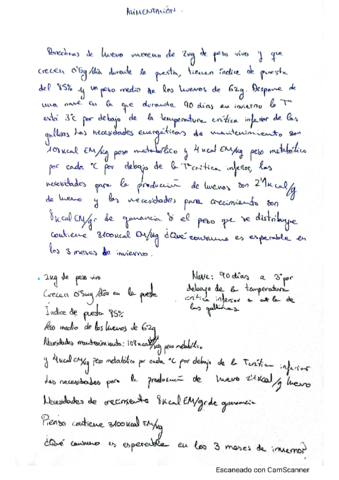 ALIMENTACIÓN.
Ponedoras de huevo moreno de 2kg de peso vivo y que
crecen 0'5g/día durante la puesta, tienen índice de puesta
del 85% y un peso medio de los huevos de 62g. Dispone de
una nave en la que durante 90 días en invierno la Tª
está 3ºc por debajo de la temperatura crítica inferior de las
gallinas Las necesidades energéticas de mantenimiento son
108 kcal EM/kg peso metabólico y 4 kcal EM/kg peso metabólico
por cada ºC por debajo de la Tª crítica inferior, las
necesidades para la producción de huevos son 2'1 kcal/g
de huevo y las necesidades para crecimiento son
8 kcal EM/gr de ganancia si el peso que se distribuye
contiene 3100 kcal EM/kg ¿Qué consumo es esperable en
los 3 meses de invierno.
· 2kg de peso vivo
Crecen 0'5mg/día en la puesta
Índice de puesta 85%
Peso medio de los huevos de 62g
Necesidades mantenimiento: 108 kcal/kg peso metabólico
y 4 kcal EM/kg peso metabólico por cada ºC por debajo de la Tª crítica inferior
Las necesidades para la producción de huevo 2'1 kcal/g huevo
Necesidades de crecimiento 8 kcal EM/gr de ganancia
Pienso contiene 3100 kcal EM/kg
¿Qué consumo es esperable en los 3 meses de invierno?
Nave: 90 días a 3º por
debajo de la temperatura
crítica inferior a la de
las gallinas
Escaneado con CamScanner